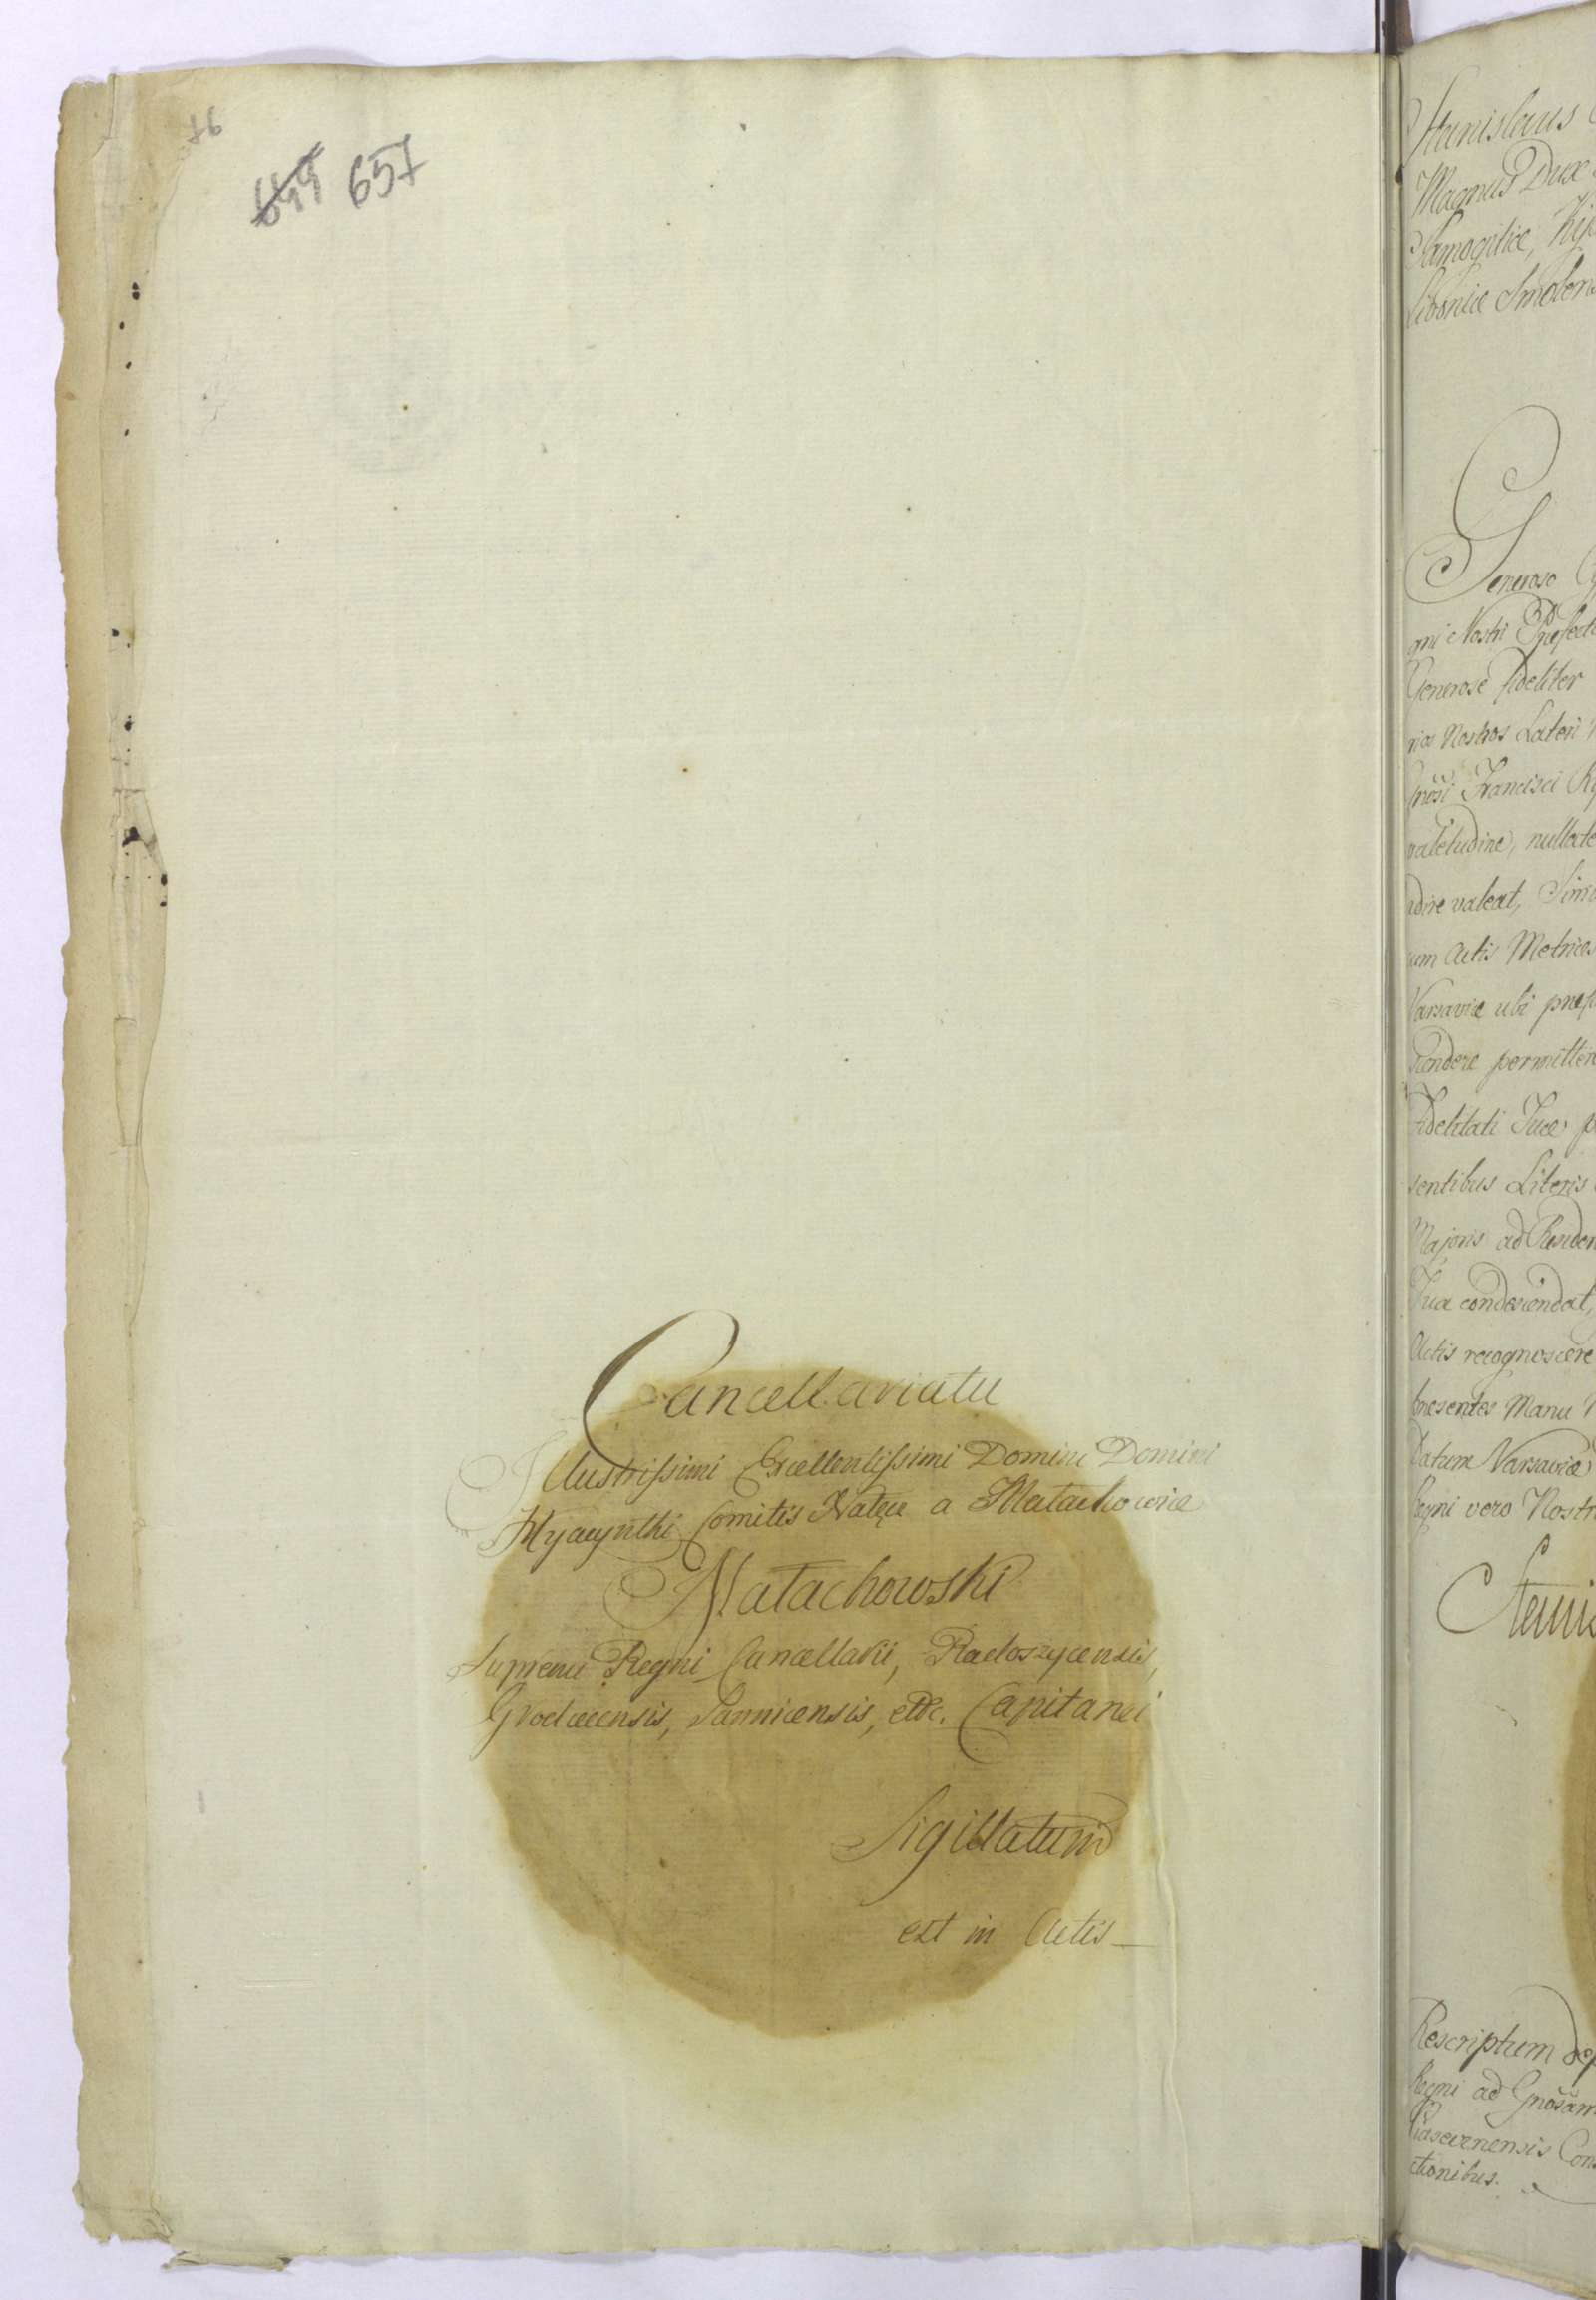 76
699 657
Cancellariatu
Illustrissimi Excellentissimi Domini Domini
Hyacynthi Comitis Nałęcz a Małachowice
Małachowski
Supremi Regni Cancellarii, Radoszycensis,
Grodecensis, Sannicensis, etc. Capitanei
Sigillatum
est in Actis
Stanislaus
Magnus Dux
Samogitiæ, Kijo
Livoniæ Smolens
Generoso
gni Nostri Præfect
Generose fideliter
rios Nostros Lateri
Gnosi Francisci
valetudine, nullate
dire valeat,
um Actis Metrices
Varsaviæ ubi
tendere permittere
Fidelitati Tuæ
sentibus Literis
Majoris ad Residen
Tua condescendat,
Actis recognoscere
præsentes Manu
Datum Varsaviæ
Regni vero Nostri
Stanis
Rescriptum
Regni ad Gnosam
Con
ctionibus.